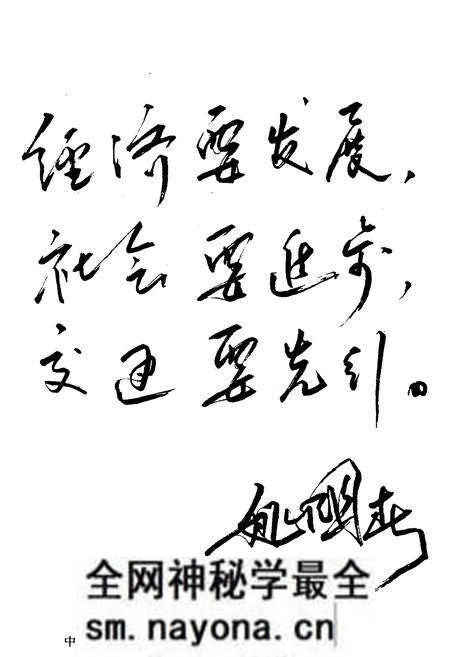 经济要发展,
社会要进步,
交通要先行。
全网神秘学最全
sm.nayona.cn
中